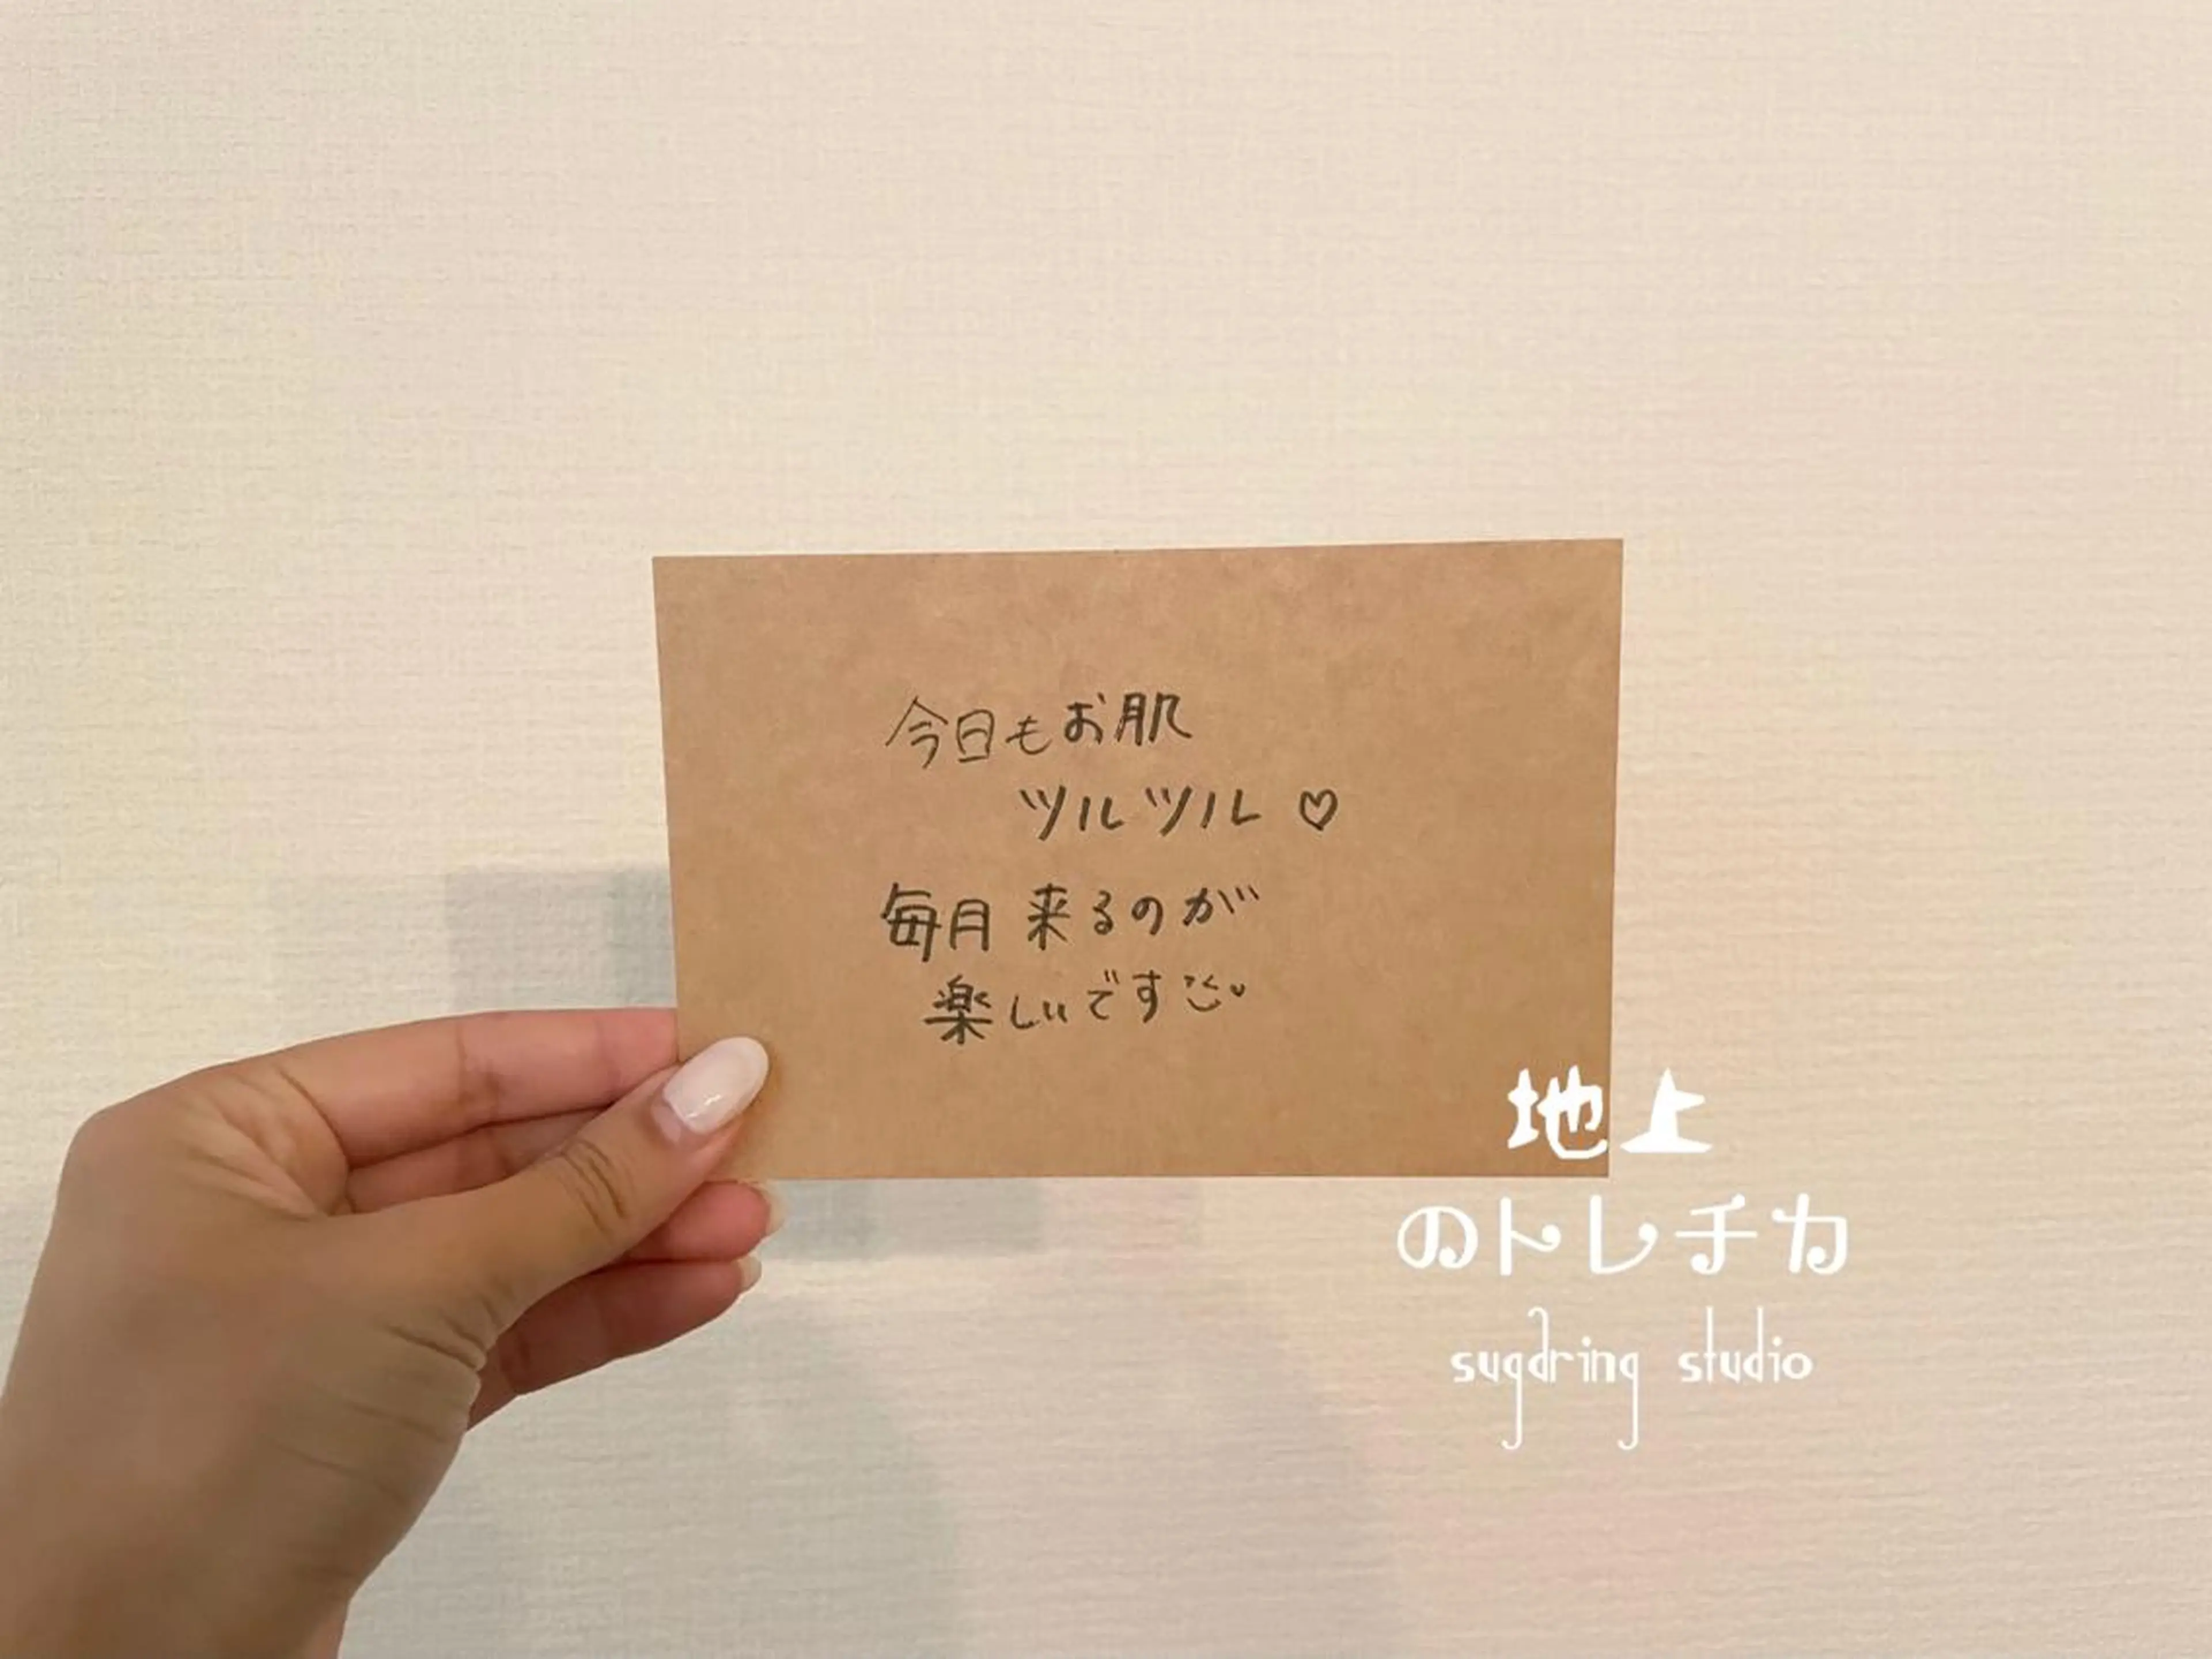 今日もお肌
ツルツル♡
毎月来るのが
楽しいです
地上
のトレチカ
sugaring studio